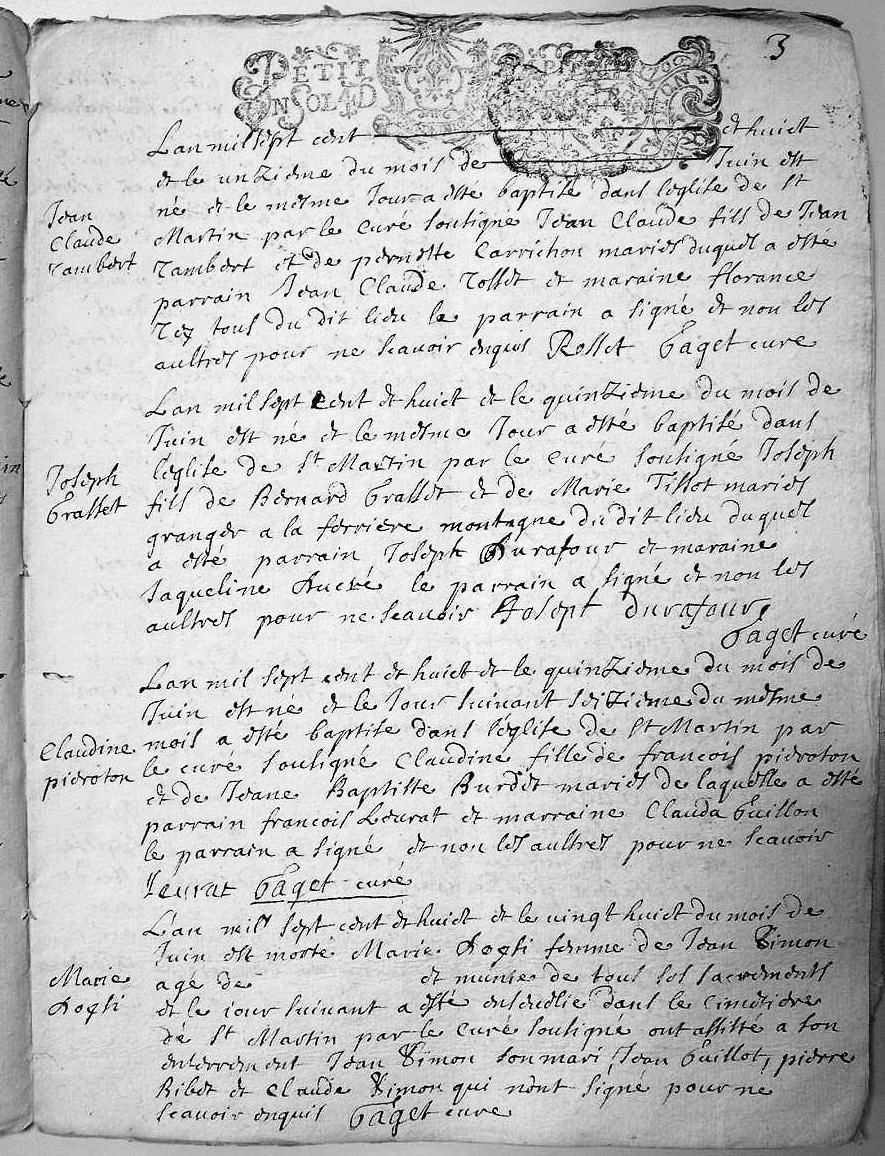 3
PETIT
EN SOL 4 D
Lan mil sept cent et huict
et le unzieme du mois de Juin est
né et le mesme Jour a esté baptisé dans leglise de St
Jean
Claude
rambert
Martin par le curé soutigné Jean Claude fils de Jean
rambert et de pernette Carrichon mariés duquel a esté
parrain Jean Claude rosset et maraine florance
rey tous du dit lieu le parrain a signé et non les
aultres pour ne scavoir enquis Rosset Gaget cure
Lan mil sept cent et huict et le quinzieme du mois de
Juin est né et le mesme Jour a esté baptisé dans
Joseph
Grasset
leglise de St Martin par le curé soutigné Joseph
fils de Bernard Grasset et de Marie Tissot mariés
granger a la ferriere montagne du dit lieu duquel
a esté parrain Joseph Durafour et maraine
Jaqueline Ducré le parrain a signé et non les
aultres pour ne scavoir Joseph Durafour
Gaget curé
Lan mil sept cent et huict et le quinzieme du mois de
Juin est né et le Jour suivant seizieme du mesme
Claudine
pieroton
mois a esté baptisé dans léglise de St Martin par
le curé soutigné Claudine fille de francois pieroton
et de Jeane Baptiste Burdet mariés de laquelle a esté
parrain francois Leurat et marraine Clauda Guillon
le parrain a signé et non les aultres pour ne scavoir
Leurat Gaget curé
Lan mil sept cent et huict et le vingt huict du mois de
Juin est morte Marie femme de Jean Simon
Marie
agé de et munie de tous ses sacrements
et le jour suivant a esté ensevelie dans le cimetiere
de St Martin par le curé soutigné ont assisté a son
enterrement Jean Simon son mari, Jean Guillot, pierre
Ribet et Claude Simon qui nont signé pour ne
scavoir enquis Gaget cure